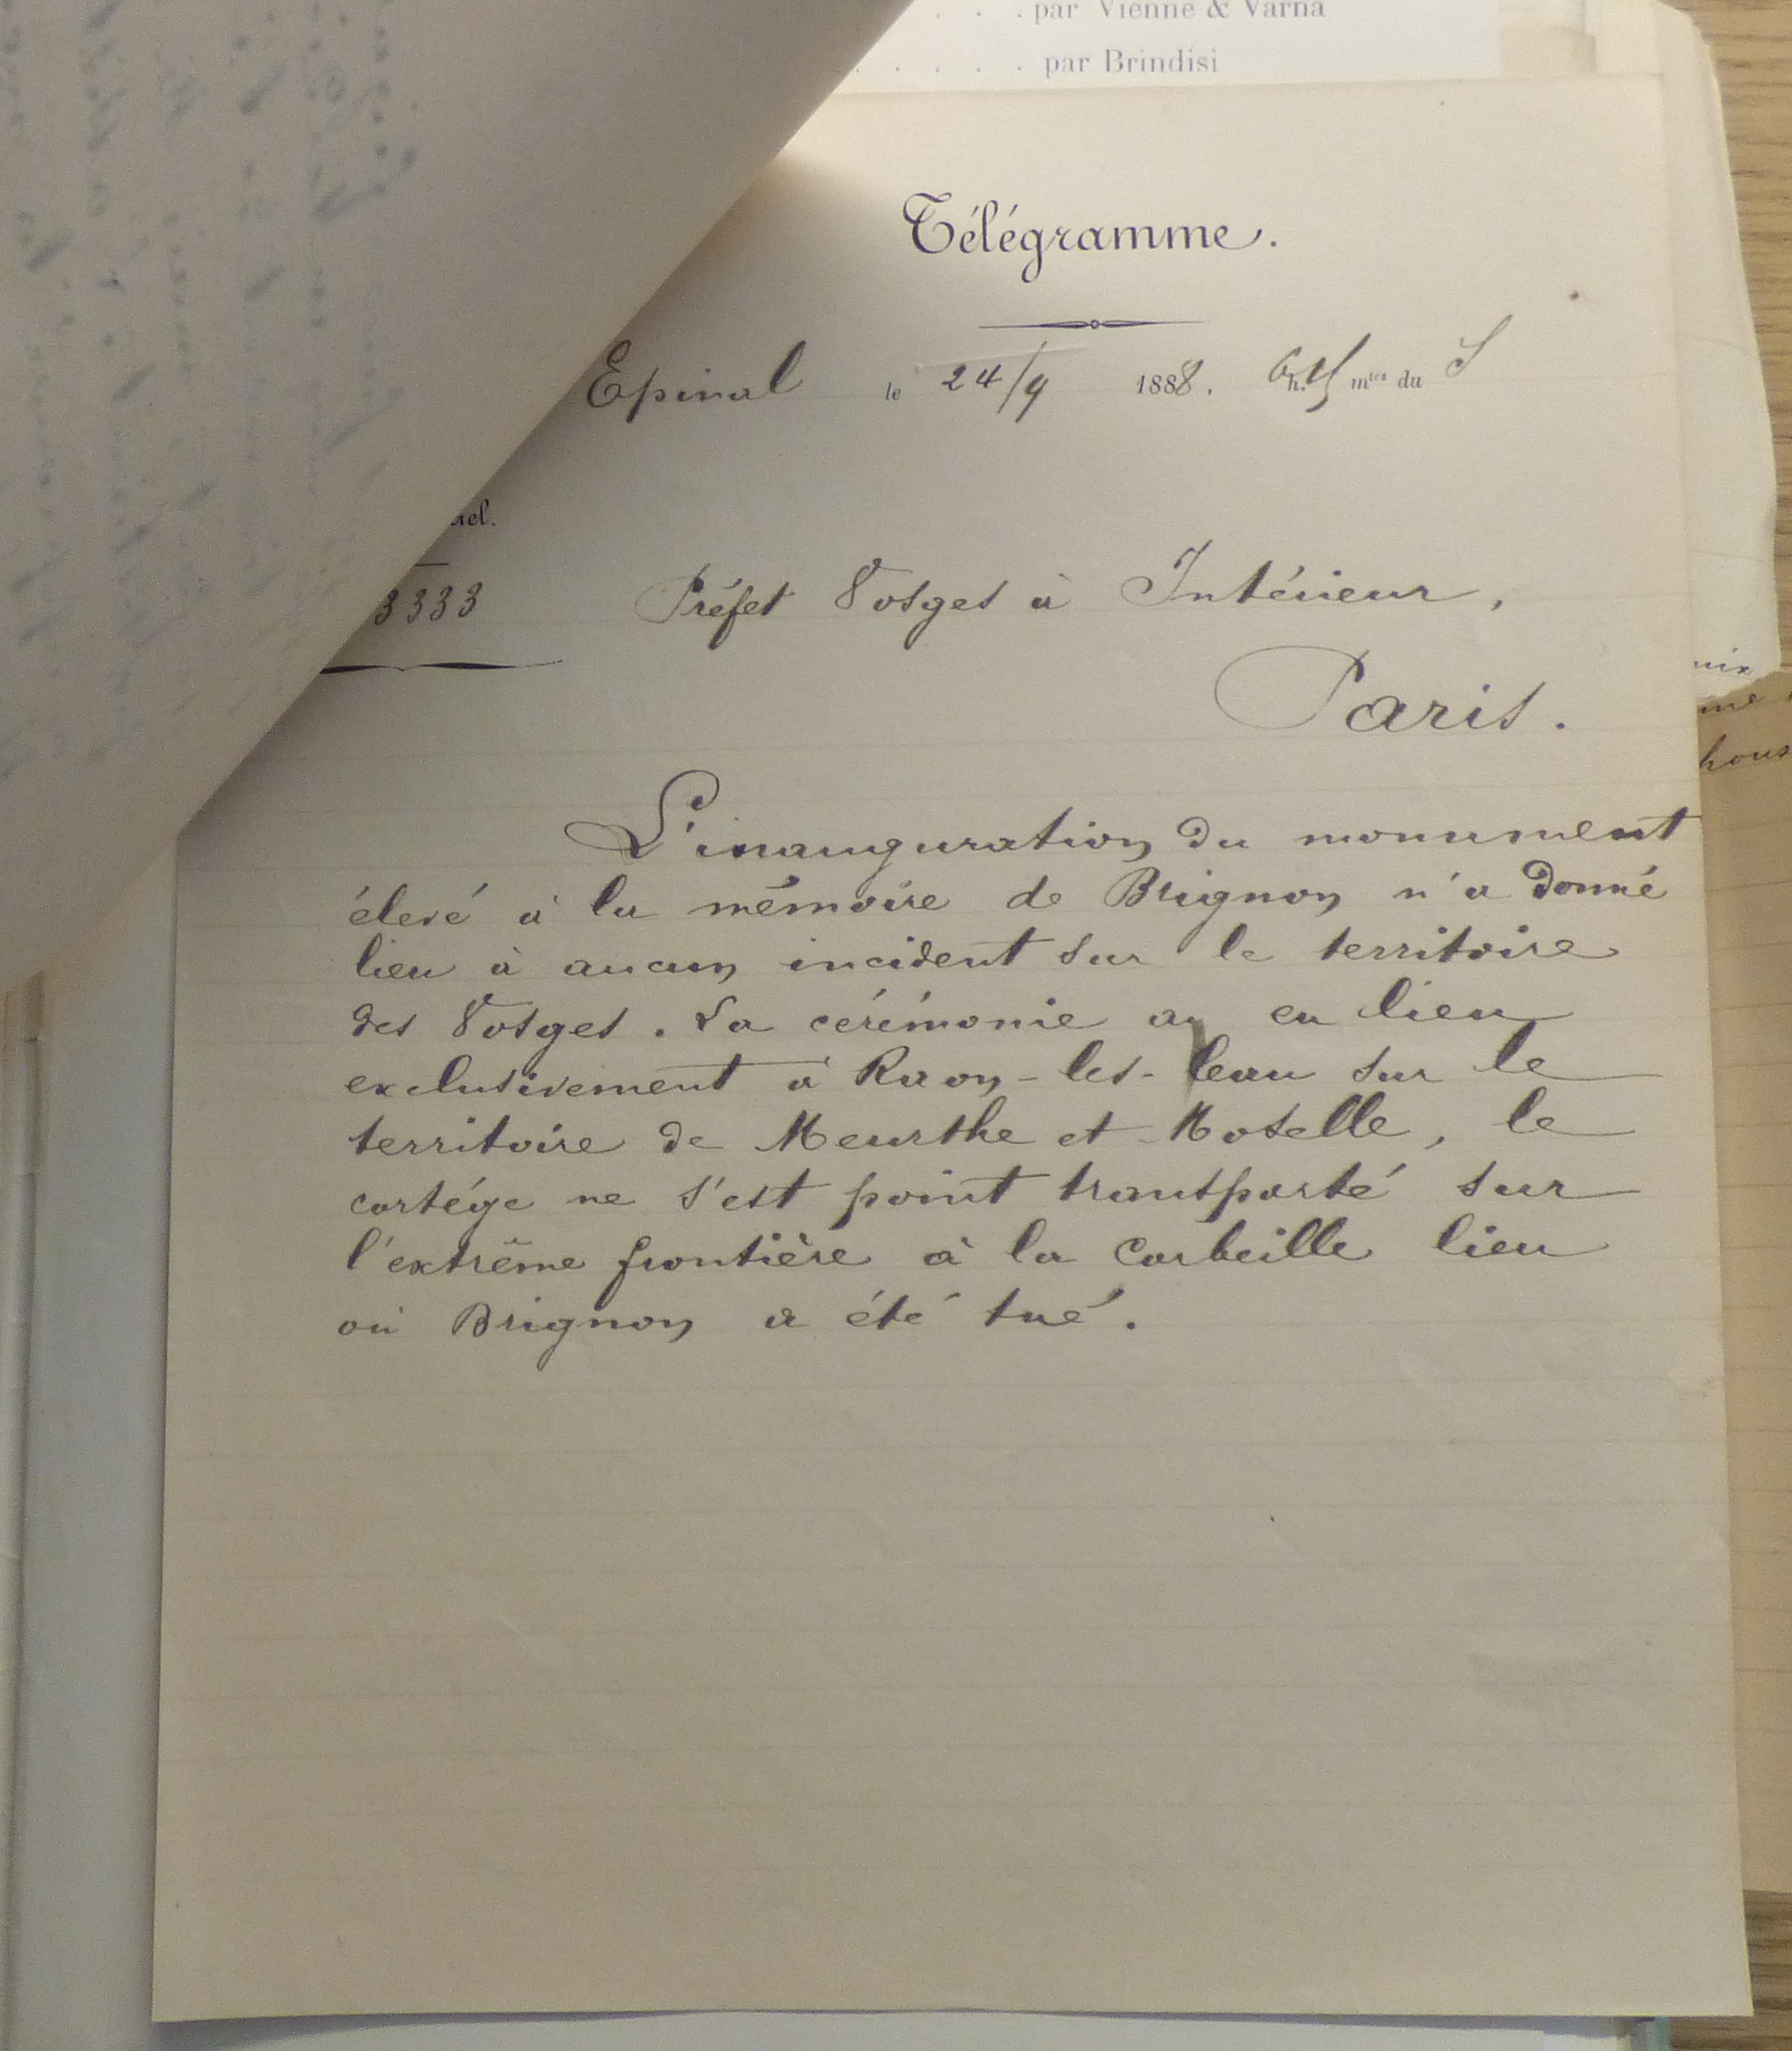 par Vienne & Varna
par Brindisi
Télégramme.
Epinal le 24/9 1888. 6h. mtes du S
3333
Préfet Vosges à Intérieur,
Paris.
L'inauguration du monument
élevé à la mémoire de Brignon n'a donné
lieu à aucun incident sur le territoire
des Vosges. La cérémonie a eu lieu
exclusivement à Raon-les-leau sur le
territoire de Meurthe et Moselle, le
cortége ne s'est point transporté sur
l'extrême frontière à la Corbeille lieu
où Brignon a été tué.